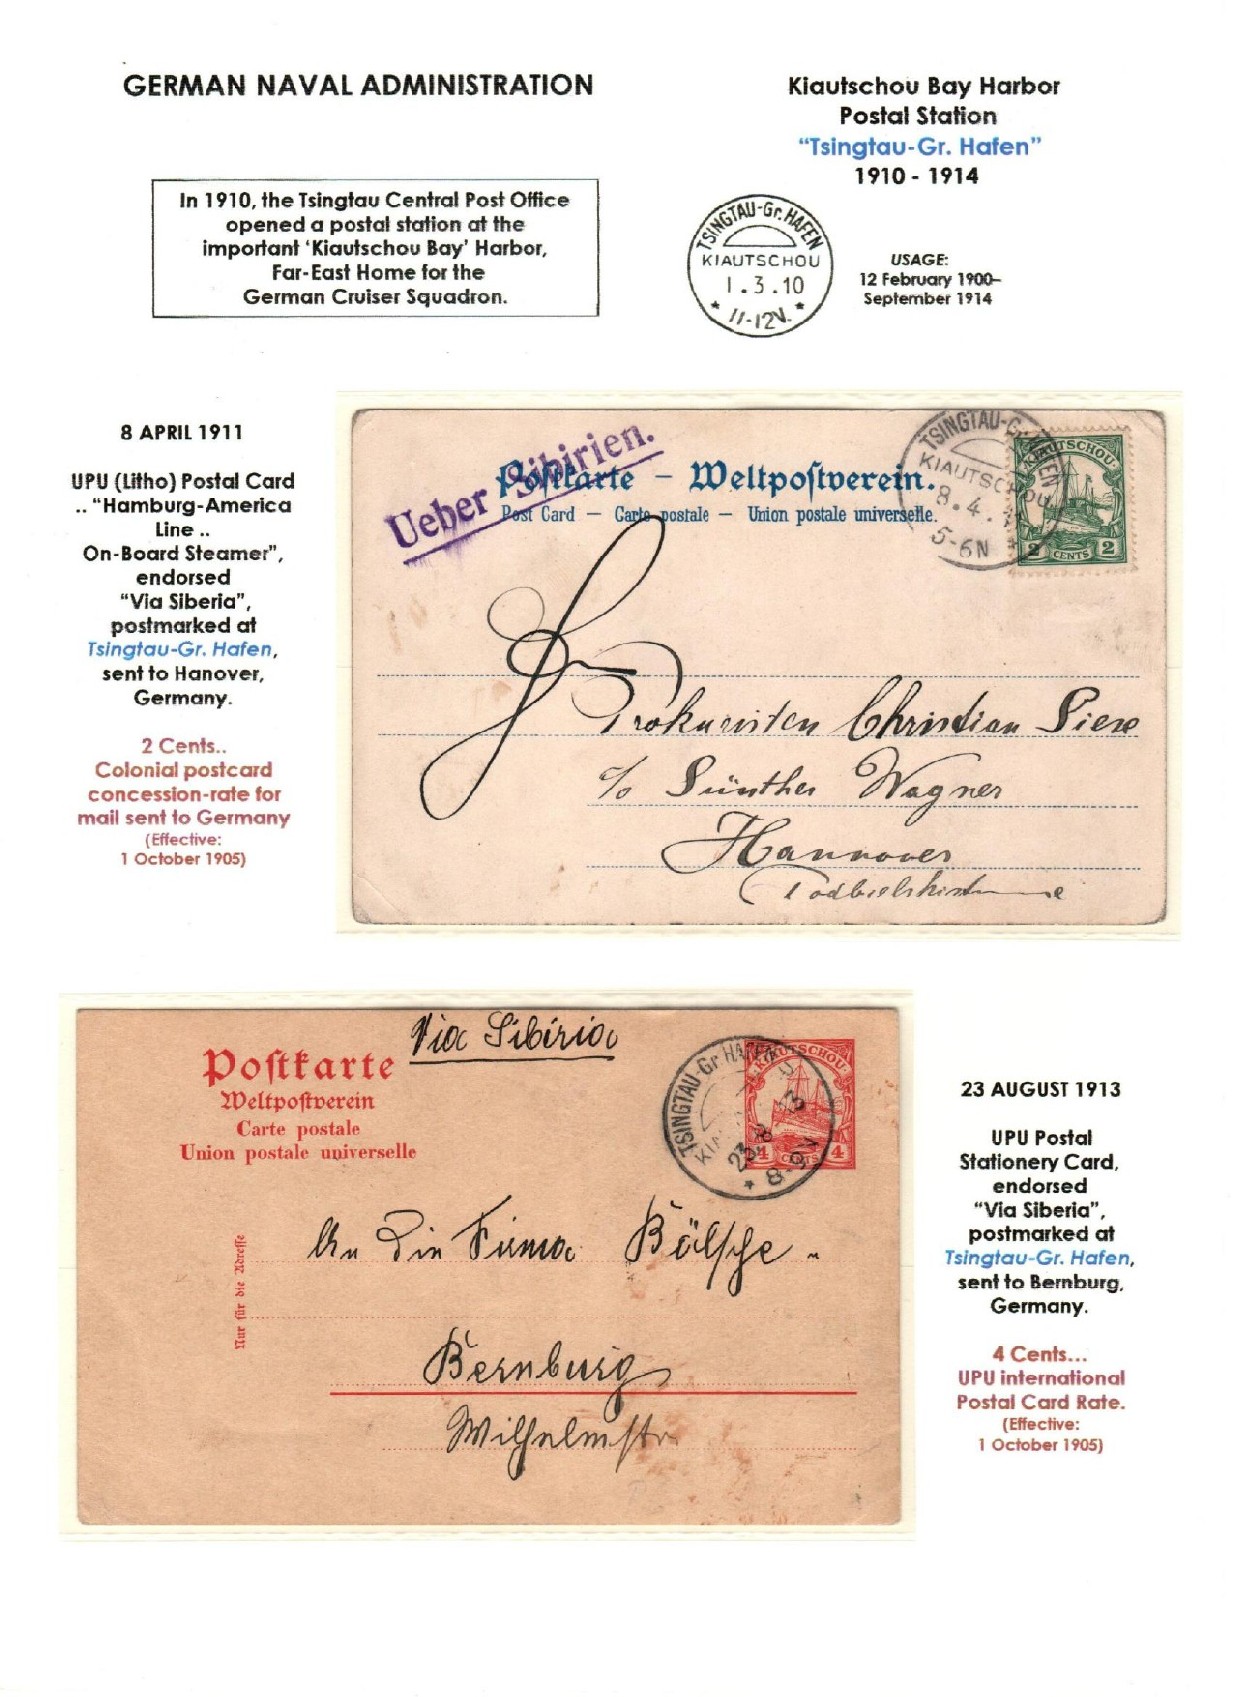 GERMAN NAVAL ADMINISTRATION
Kiautschou Bay Harbor
Postal Station
“Tsingtau-Gr. Hafen”
1910 - 1914
In 1910, the Tsingtau Central Post Office
opened a postal station at the
important ‘Kiautschou Bay’ Harbor,
Far-East Home for the
German Cruiser Squadron.
TSINGTAU-Gr. HAFEN
KIAUTSCHOU
1.3.10
* 11-12V. *
USAGE:
12 February 1900–
September 1914
8 APRIL 1911
UPU (Litho) Postal Card
.. “Hamburg-America
Line ..
On-Board Steamer”,
endorsed
“Via Siberia”,
postmarked at
Tsingtau-Gr. Hafen,
sent to Hanover,
Germany.
2 Cents..
Colonial postcard
concession-rate for
mail sent to Germany
(Effective:
1 October 1905)
Ueber Sibirien.
Postkarte – Weltpostverein.
Post Card – Carte postale – Union postale universelle.
TSINGTAU-Gr. HAFEN
KIAUTSCHOU
8.4.11
5-6N *
KIAUTSCHOU
2 CENTS 2
Prokuristen Christian Piere
c/o Günther Wagner
Hannover
Via Sibiria
Postkarte
Weltpostverein
Carte postale
Union postale universelle
TSINGTAU-Gr HAFEN
23.8.13
* 8-9V
KIAUTSCHOU
4 CENTS 4
Nur für die Adresse
An die Firma Bölsche
Bernburg
Wilhelmstr
23 AUGUST 1913
UPU Postal
Stationery Card,
endorsed
“Via Siberia”,
postmarked at
Tsingtau-Gr. Hafen,
sent to Bernburg,
Germany.
4 Cents...
UPU international
Postal Card Rate.
(Effective:
1 October 1905)